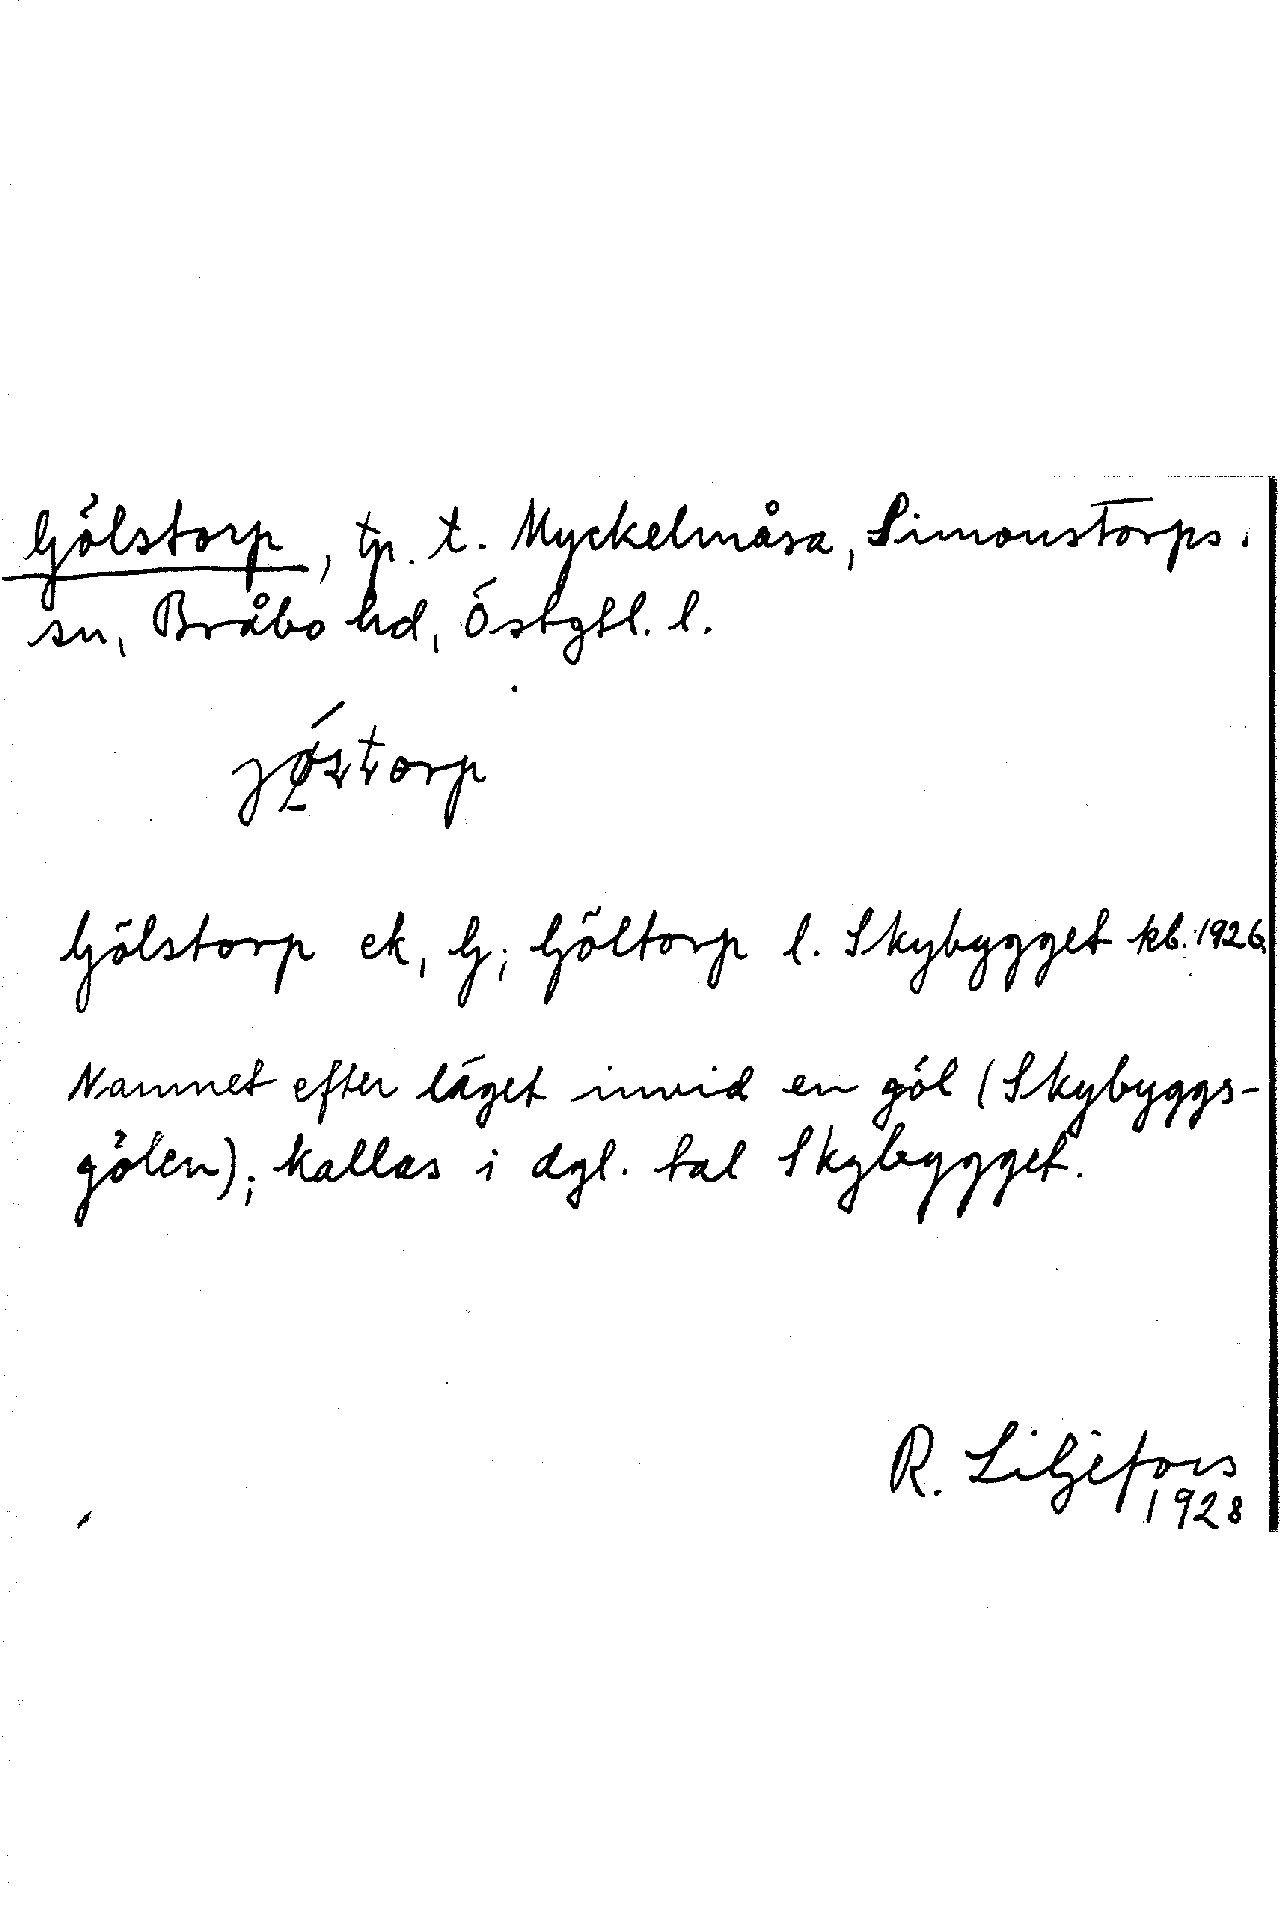 Gölstorp, tp. t. Myckelmåsa, Simonstorps.
sn, Bråbo hd, Östgtl. l.
Gölstorp ek, G; Göltorp l. Skybygget kb. 1926.
Namnet efter läget invid en göl (Skybyggs-
gölen); kallas i dgl. tal Skybygget.
R. Liljefors
1928